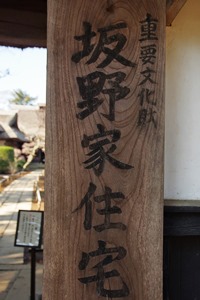 重要文化財
坂野家住宅